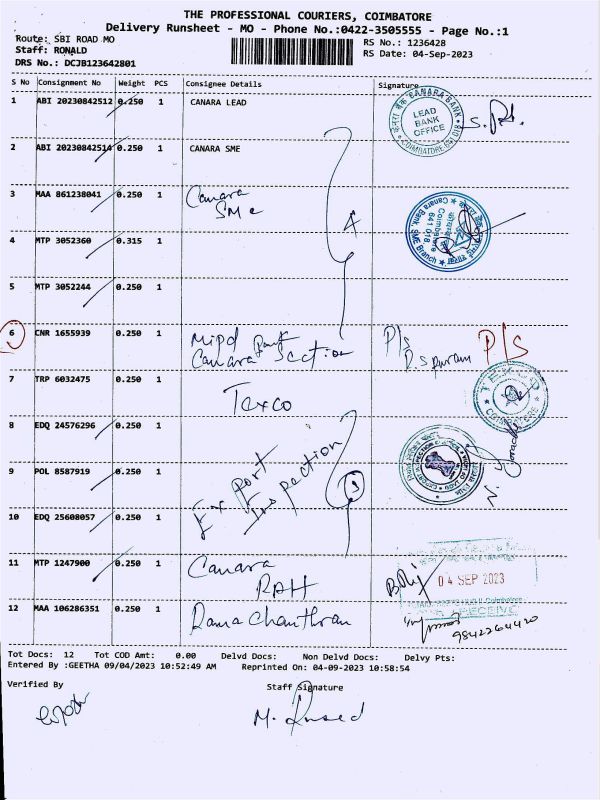 THE PROFESSIONAL COURIERS, COIMBATORE
Delivery Runsheet - MO - Phone No.:0422-3505555 - Page No.:1
Route: SBI ROAD MO
RS No.: 1236428
Staff: RONALD
RS Date: 04-Sep-2023
DRS No.: DCJB123642801
S No Consignment No Weight PCS Consignee Details Signature
1 ABI 20230842512 0.250 1 CANARA LEAD
LEAD BANK OFFICE
2 ABI 20230842514 0.250 1 CANARA SME
3 MAA 861238041 0.250 1 Canara SMe
Coimbatore 641 018
Canara Bank, SME Branch
4 MTP 3052360 0.315 1
4
5 MTP 3052244 0.250 1
6 CNR 1655939 0.250 1
Canara Section
P/s P/S
7 TRP 6032475 0.250 1 Texco
TEXCO COIMBATORE
8 EDQ 24576296 0.250 1
9 POL 8587919 0.250 1 Export Inspection
3
10 EDQ 25608057 0.250 1
11 MTP 1247900 0.250 1 Canara RAH
04 SEP 2023
12 MAA 106286351 0.250 1
9842264420
Tot Docs: 12 Tot COD Amt: 0.00 Delvd Docs: Non Delvd Docs: Delvy Pts:
Entered By :GEETHA 09/04/2023 10:52:49 AM Reprinted On: 04-09-2023 10:58:54
Verified By Staff Signature